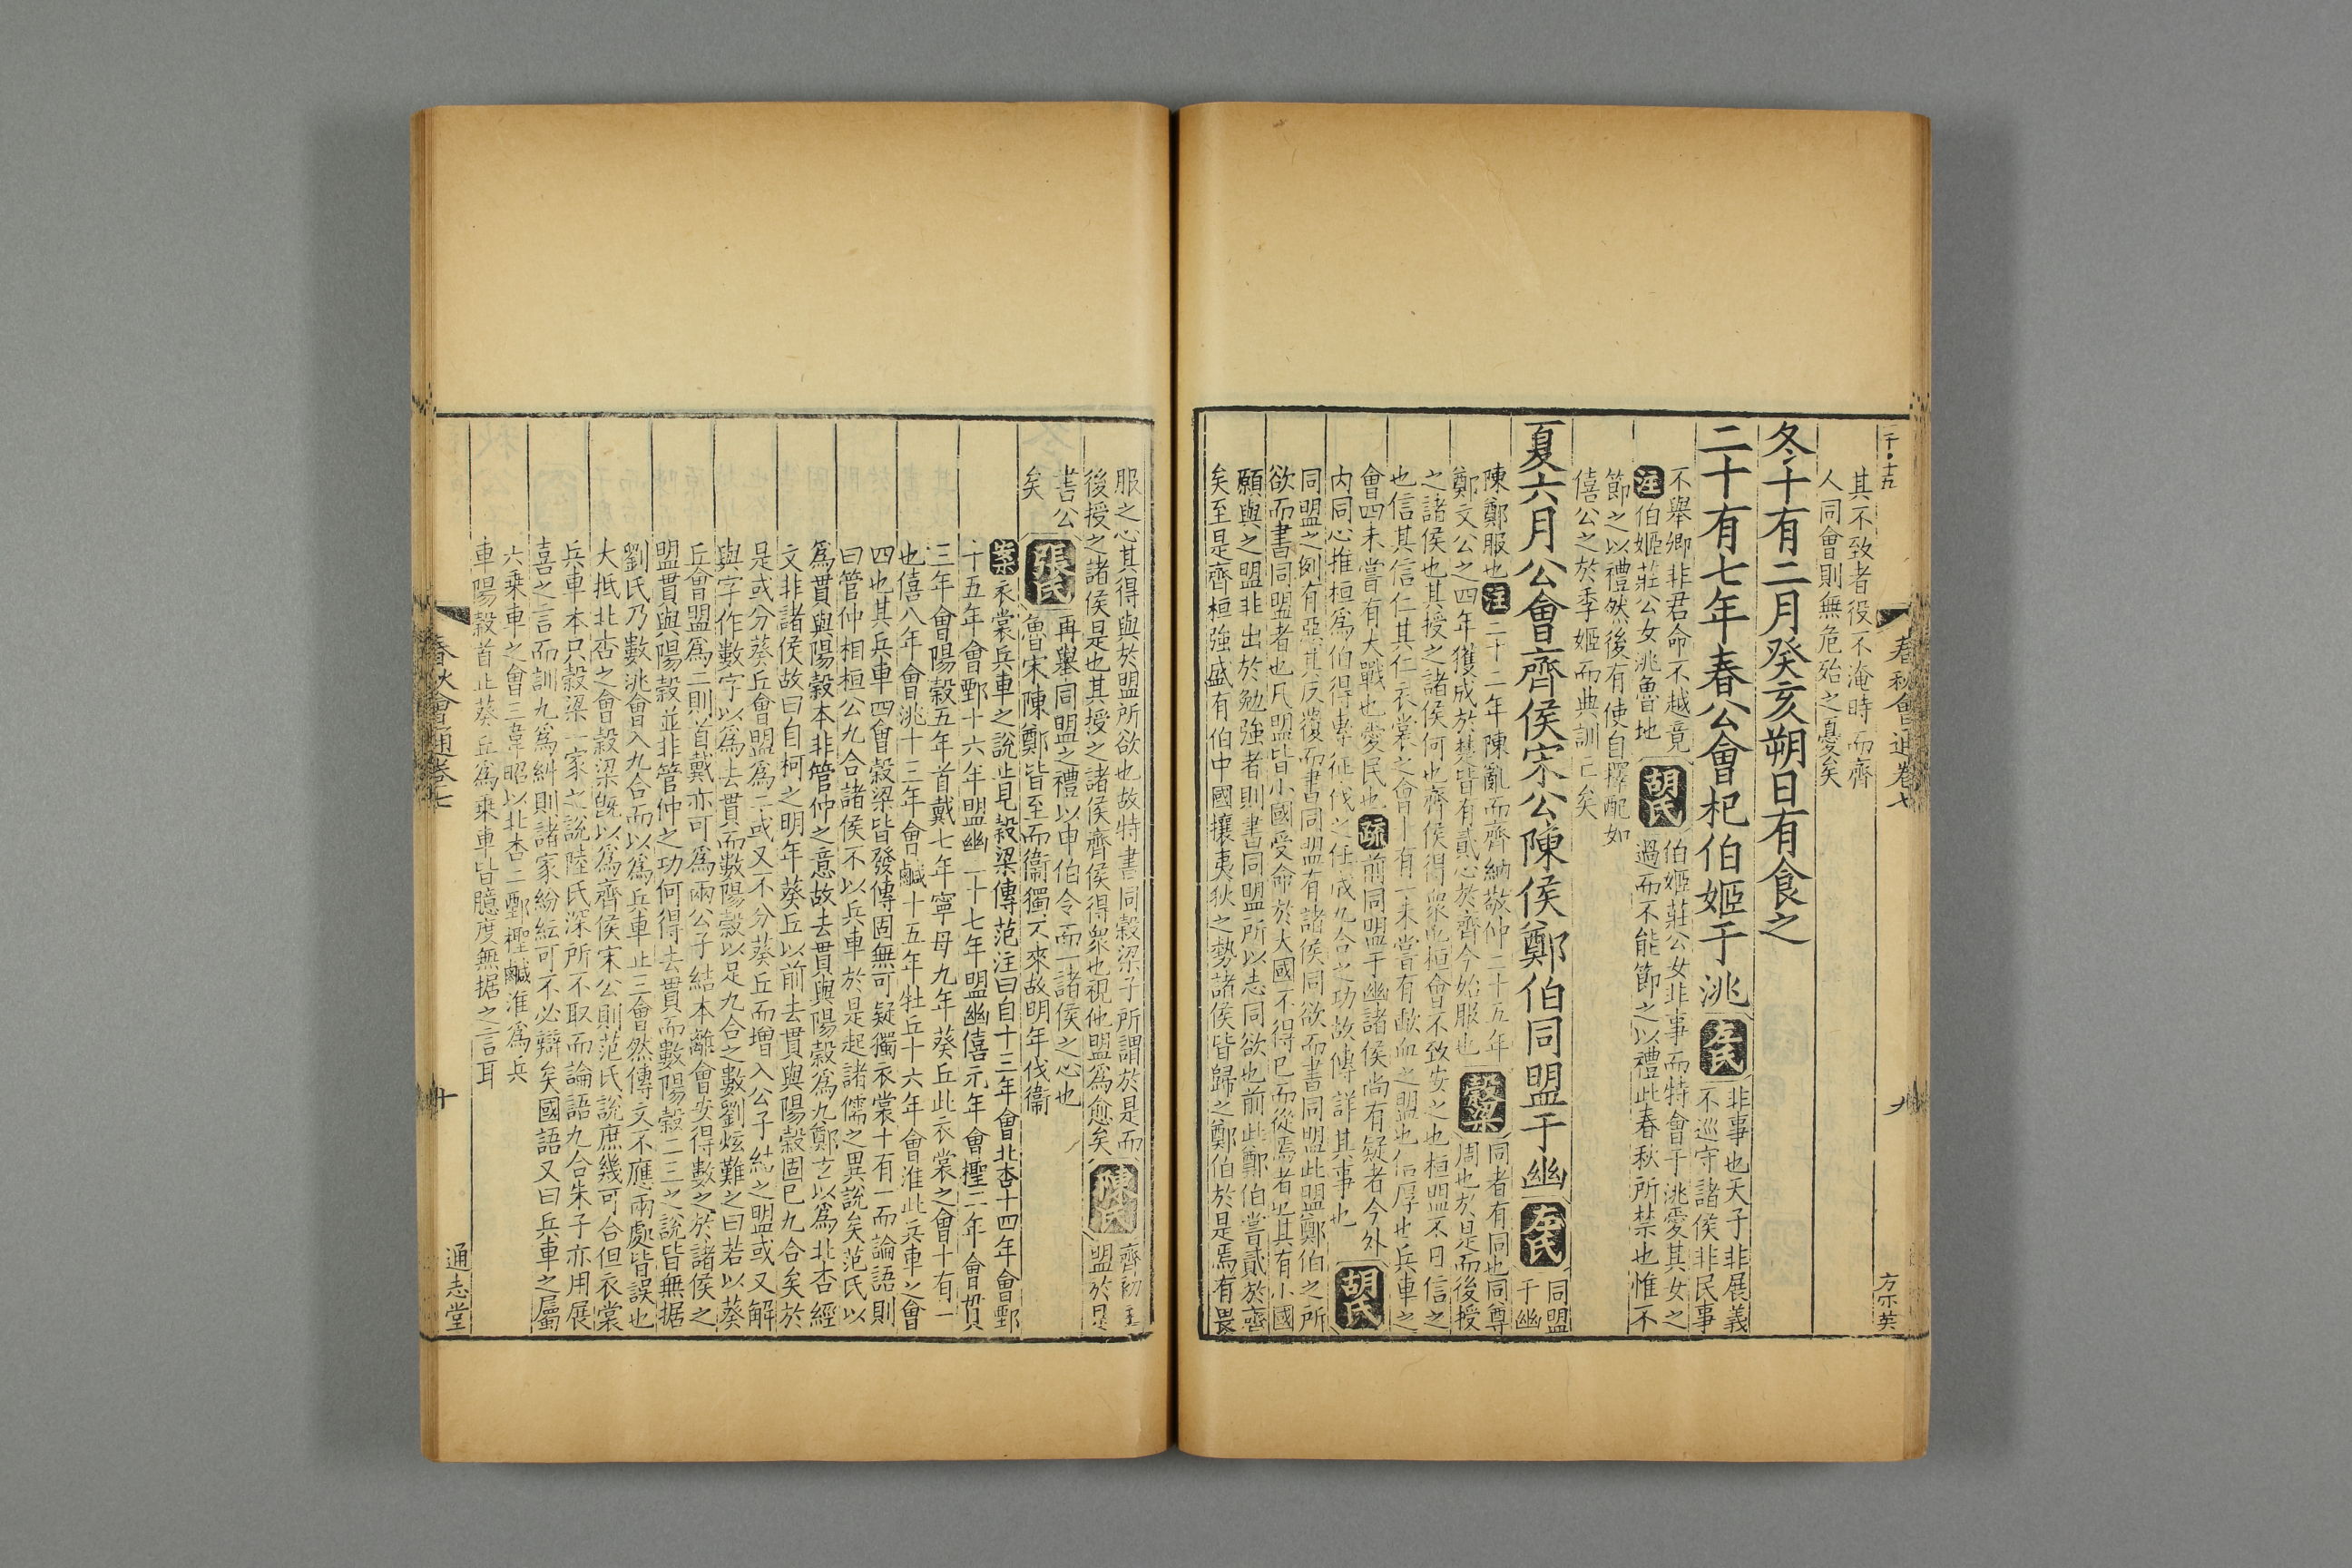 其不致者役不淹時而齊
人同會則無危殆之憂矣
冬十有二月癸亥朔日有食之
二十有七年春公會杞伯姬于洮
左氏
非事也天子非展義
不巡守諸侯非民事
不舉卿非君命不越竟
注伯姬莊公女洮魯地
胡氏
伯姬莊公女非事而特會于洮愛其女之
過而不能節之以禮此春秋所禁也惟不
節之以禮然後有使自擇配如
僖公之於季姬而典訓亡矣
夏六月公會齊侯宋公陳侯鄭伯同盟于幽
左氏
同盟
于幽
陳鄭服也注二十二年陳亂而齊納敬仲二十五年
鄭文公之四年獲成於楚皆有貳心於齊今始服也
穀梁
同者有同也同尊
周也於是而後授
之諸侯也其授之諸侯何也齊侯得衆也桓會不致安之也桓盟不日信之
也信其信仁其仁衣裳之會十有一未嘗有歃血之盟也信厚也兵車之
會四未嘗有大戰也愛民也疏前同盟于幽諸侯尚有疑者今外
内同心推桓爲伯得專征伐之任成九合之功故傳詳其事也
胡氏
同盟之例有惡其反覆而書同盟有諸侯同欲而書同盟此盟鄭伯之所
欲而書同盟者也凡盟皆小國受命於大國不得已而從焉者也其有小國
願與之盟非出於勉強者則書同盟所以志同欲也前此鄭伯嘗貳於齊
矣至是齊桓強盛有伯中國攘夷狄之勢諸侯皆歸之鄭伯於是焉有畏
春秋會通卷七
九
方宗英
服之心其得與於盟所欲也故特書同穀梁子所謂於是而
後授之諸侯是也其授之諸侯齊侯得衆也視他盟爲愈矣
陳氏
齊初主
盟於是
書公
矣
張氏
再舉同盟之禮以申伯令而一諸侯之心也
魯宋陳鄭皆至而衞獨不來故明年伐衞
案衣裳兵車之說止見穀梁傳范注曰自十三年會北杏十四年會鄄
十五年會鄄十六年盟幽二十七年盟幽僖元年會檉二年會貫
三年會陽穀五年首戴七年寧母九年葵丘此衣裳之會十有一
也僖八年會洮十三年會鹹十五年牡丘十六年會淮此兵車之會
四也其兵車四會穀梁皆發傳固無可疑獨衣裳十有一而論語則
曰管仲相桓公九合諸侯不以兵車於是起諸儒之異說矣范氏以
爲貫與陽穀本非管仲之意故去貫與陽穀爲九鄭玄以爲北杏經
文非諸侯故曰自柯之明年葵丘以前去貫與陽穀固已九合矣於
是或分葵丘會盟爲二或又不分葵丘而增入公子結之盟或又解
與字作數字以爲去貫而數陽穀以足九合之數劉炫難之曰若以葵
丘會盟爲二則首戴亦可爲兩公子結本離會安得數之於諸侯之
盟貫與陽穀並非管仲之功何得去貫而數陽穀二三之說皆無据
劉氏乃數洮會入九合而以爲兵車止三會然傳文不應兩處皆誤也
大抵北杏之會穀梁旣以爲齊侯宋公則范氏說庶幾可合但衣裳
兵車本只穀梁一家之說陸氏深所不取而論語九合朱子亦用展
喜之言而訓九爲糾則諸家紛紜可不必辯矣國語又曰兵車之屬
六乗車之會三韋昭以北杏二鄄檉鹹淮爲兵
車陽穀首止葵丘爲乗車皆臆度無据之言耳
春秋會通卷七
十
通志堂